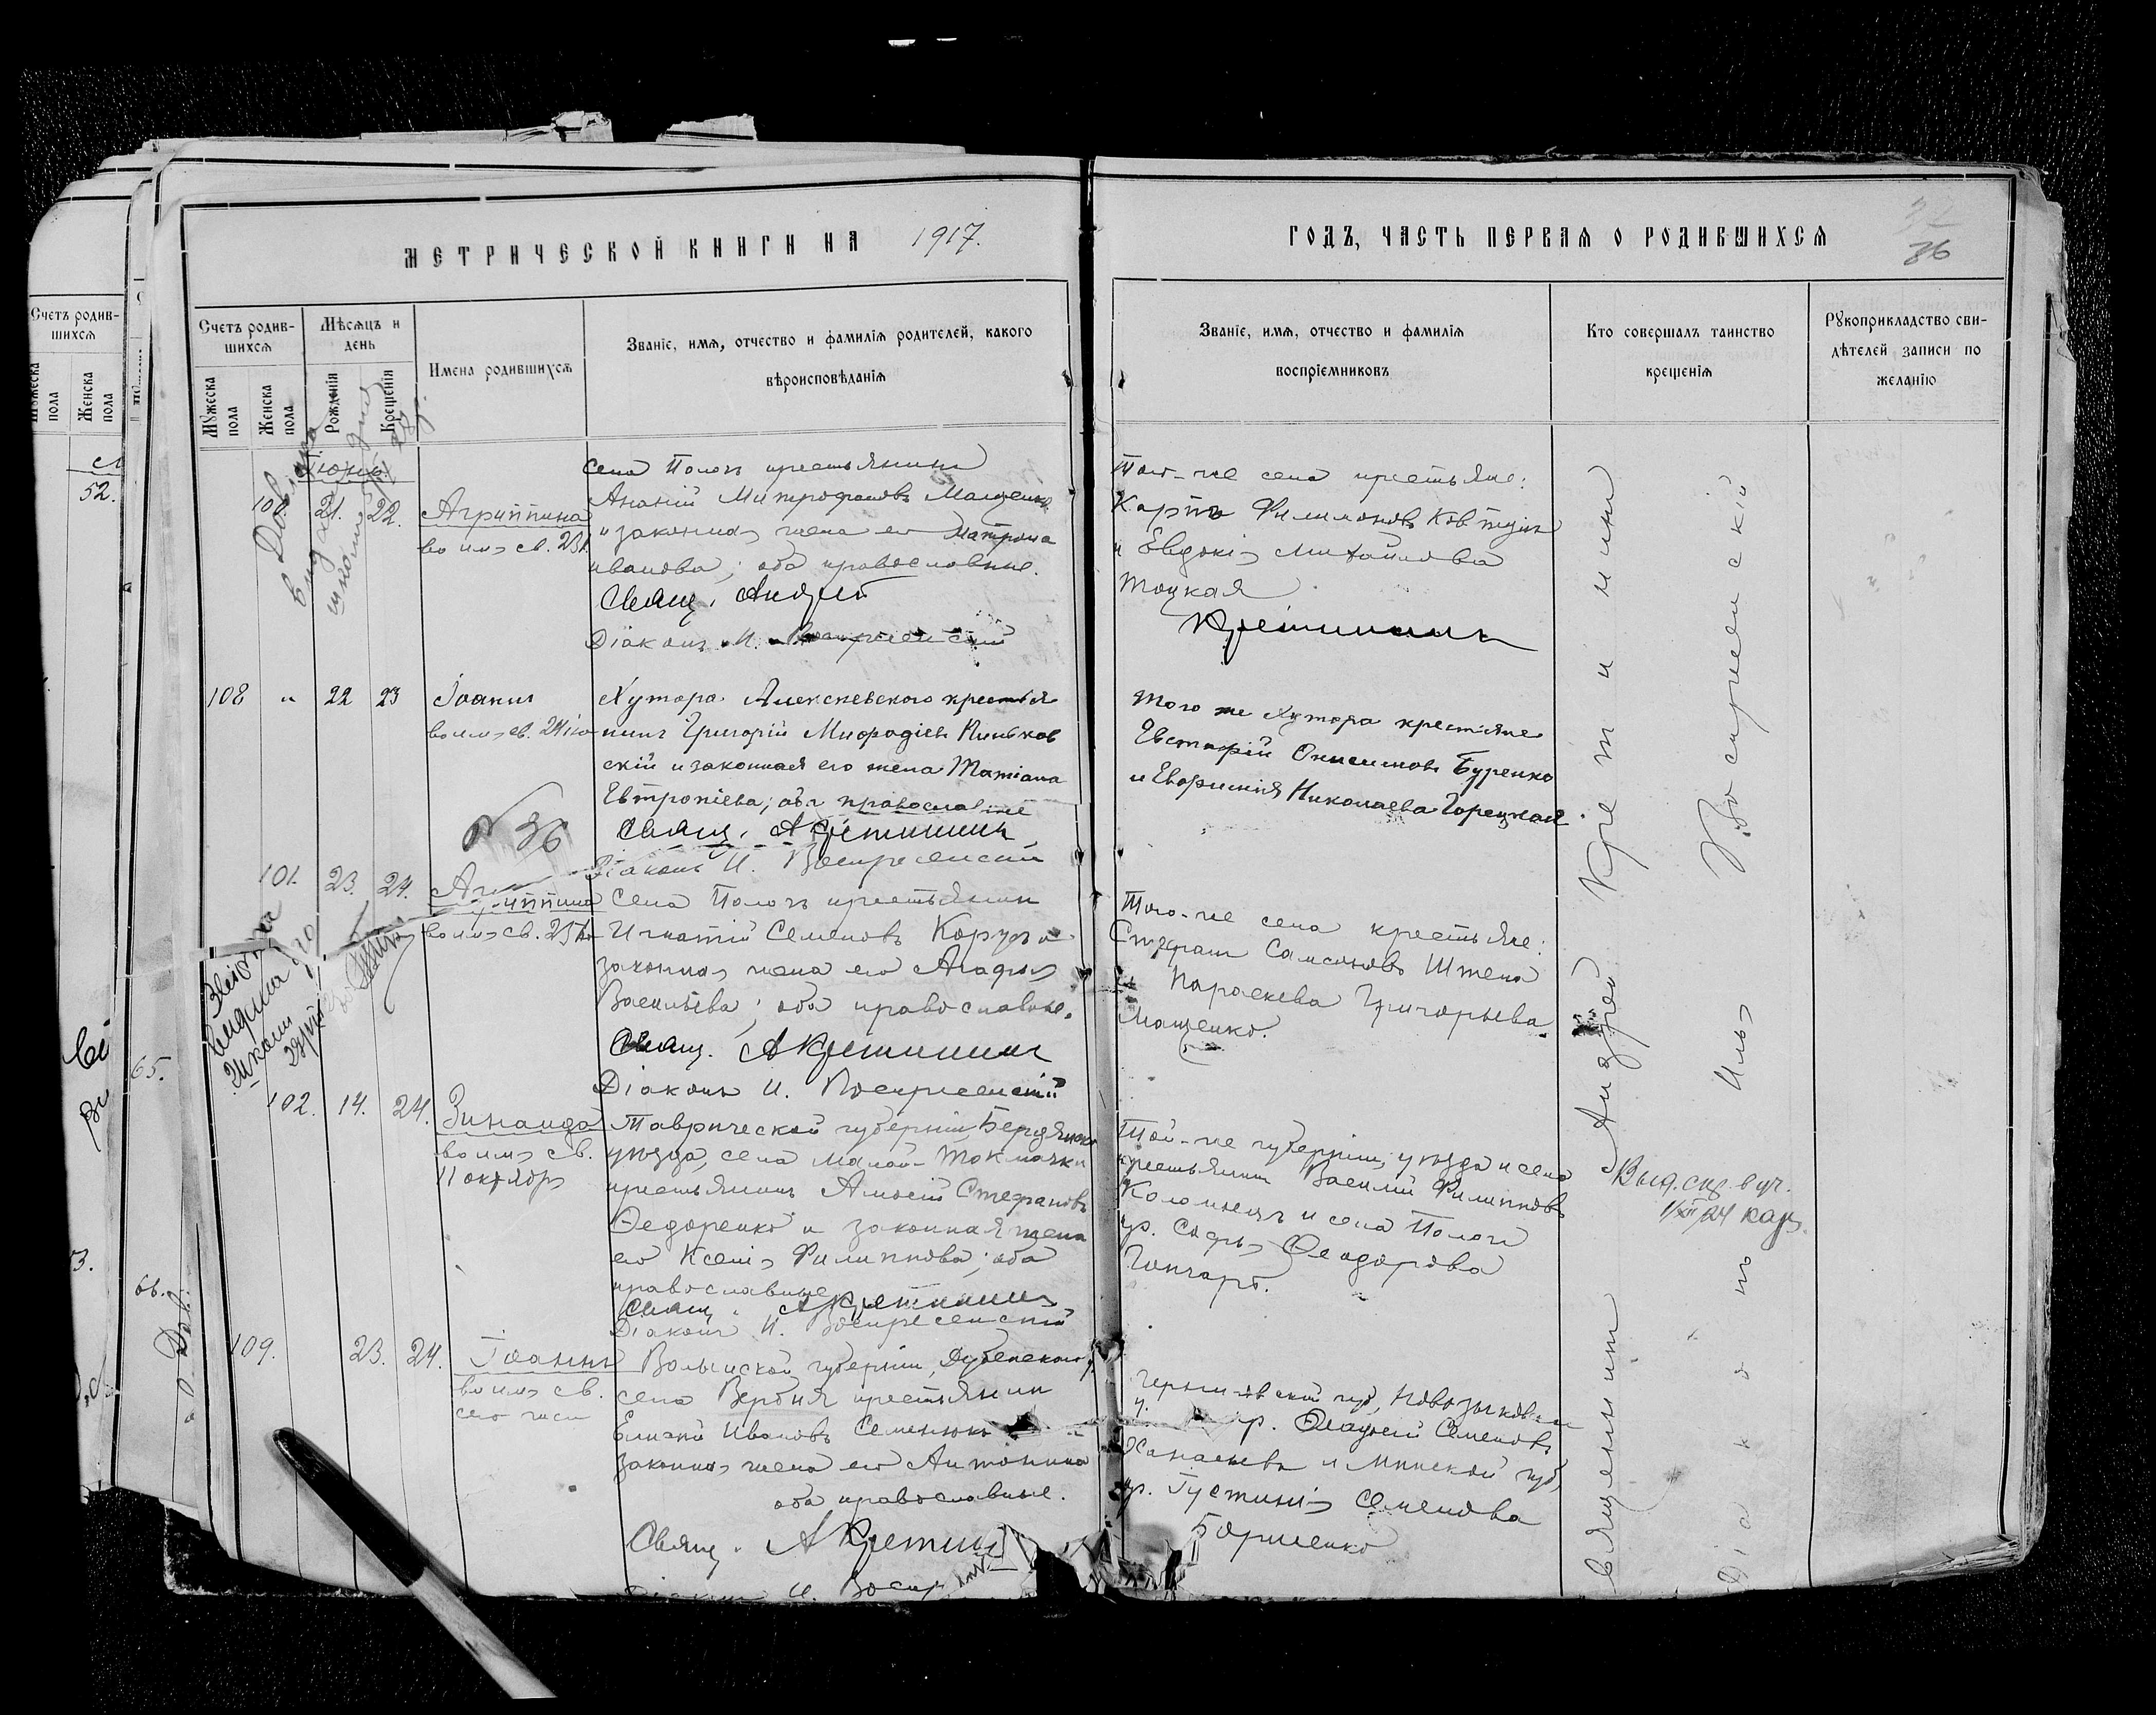 МЕТРИЧЕСКОЙ КНИГИ НА 1917.
Счетъ родив-
шихся
Мѣсяцъ и
день
Имена родившихся
Званіе, имя, отчество и фамилія родителей, какого
вѣроисповѣданія
Мужеска
пола
Женска
пола
Рожденія
Крещенія
Іюнь
21. 22. Агриппина
во имя св. 23 і.
села Пологъ крестьянинъ
Ананій Митрофановъ Мащенко
и законная жена его Матрона
Иванова; оба православные.
Свящ. Андрей
Діаконъ И. Воскресенскій
108 " 22 23 Іоаннъ
во имя св. 24 ію
Хутора Алексеевского крестья
нинъ Григорій Миѳодіевъ Киньков
скій и законная его жена Татіана
Евтропіева; оба православные
Свящ. А Кретининъ
Діаконъ И. Воскресенскій
№ 36
101. 23. 24. Агриппина
во имя св. 23 Ію
Села Пологъ крестьянинъ
Игнатій Семеновъ Коруза и
законная жена его Агафія
Васильева; оба православные.
Свящ. А Кретининъ
Діаконъ И. Воскресенскій
102. 14. 24. Зинаида
во имя св.
11 октября
Таврической губерніи Бердянскаго
уѣзда, села Малой-Токмачки
крестьянинъ Амосій Стефановъ
Ѳедоренко и законная жена
его Ксенія Филиппова; оба
православные
Свящ. А Кретининъ
Діаконъ И. Воскресенскій
109. 23. 24. Іоаннъ
во имя св.
сего числа
Волынской губерніи, Дубенскаго у.
села Вербня крестьянинъ
Ивановъ Семенюкъ
законная жена его Антонина
оба православные.
Свящ. А Кретининъ
Діаконъ И. Воскр
ГОДЪ, ЧАСТЬ ПЕРВАЯ О РОДИВШИХСЯ
36
Званіе, имя, отчество и фамилія
воспріемниковъ
Кто совершалъ таинство
крещенія
Рукоприкладство сви-
дѣтелей записи по
желанію
Того-же села крестьяне:
Карпъ Филимоновъ Ковтунъ
и Евдокія Михайлова
Тоцкая
Кретининъ
Того же Хутора крестьяне
Евстафій Онисимовъ Буренко
и Евфимія Николаева Горецкая.
Того-же села крестьяне:
Стефанъ Самсоновъ Штепа
и Параскева Григорьева
Мащенко.
Той-же губерніи, уѣзда и села
крестьянинъ Василій Филипповъ
Коломыецъ и села Пологъ
кр. Софія Ѳеодорова
Гончаръ.
Черниговской губ, Новозыбков
у. кр. Семеновъ
и Минской губ,
кр. Густинія Семенова
Борисенко
Священникъ Андрей Кретининъ
Діаконъ Илья Воскресенскій
Счетъ родив-
шихся
Мужеска
пола
Женска
пола
52.
65.